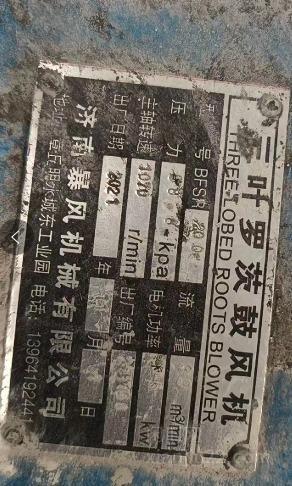 三叶罗茨鼓风机
THREE-LOBED ROOTS BLOWER
型号 BFSR 流量 m³/min
压力 kpa 电机功率 kw
主轴转速 1070 r/min 出厂编号
出厂日期 2021 年 月 日
济南暴风机械有限公司
地址 章丘明水城东工业园 电话